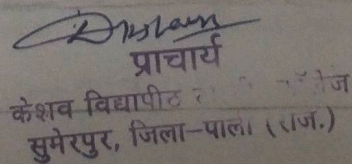 प्राचार्य
केशव विद्यापीठ
सुमेरपुर, जिला-पाली (राज.)